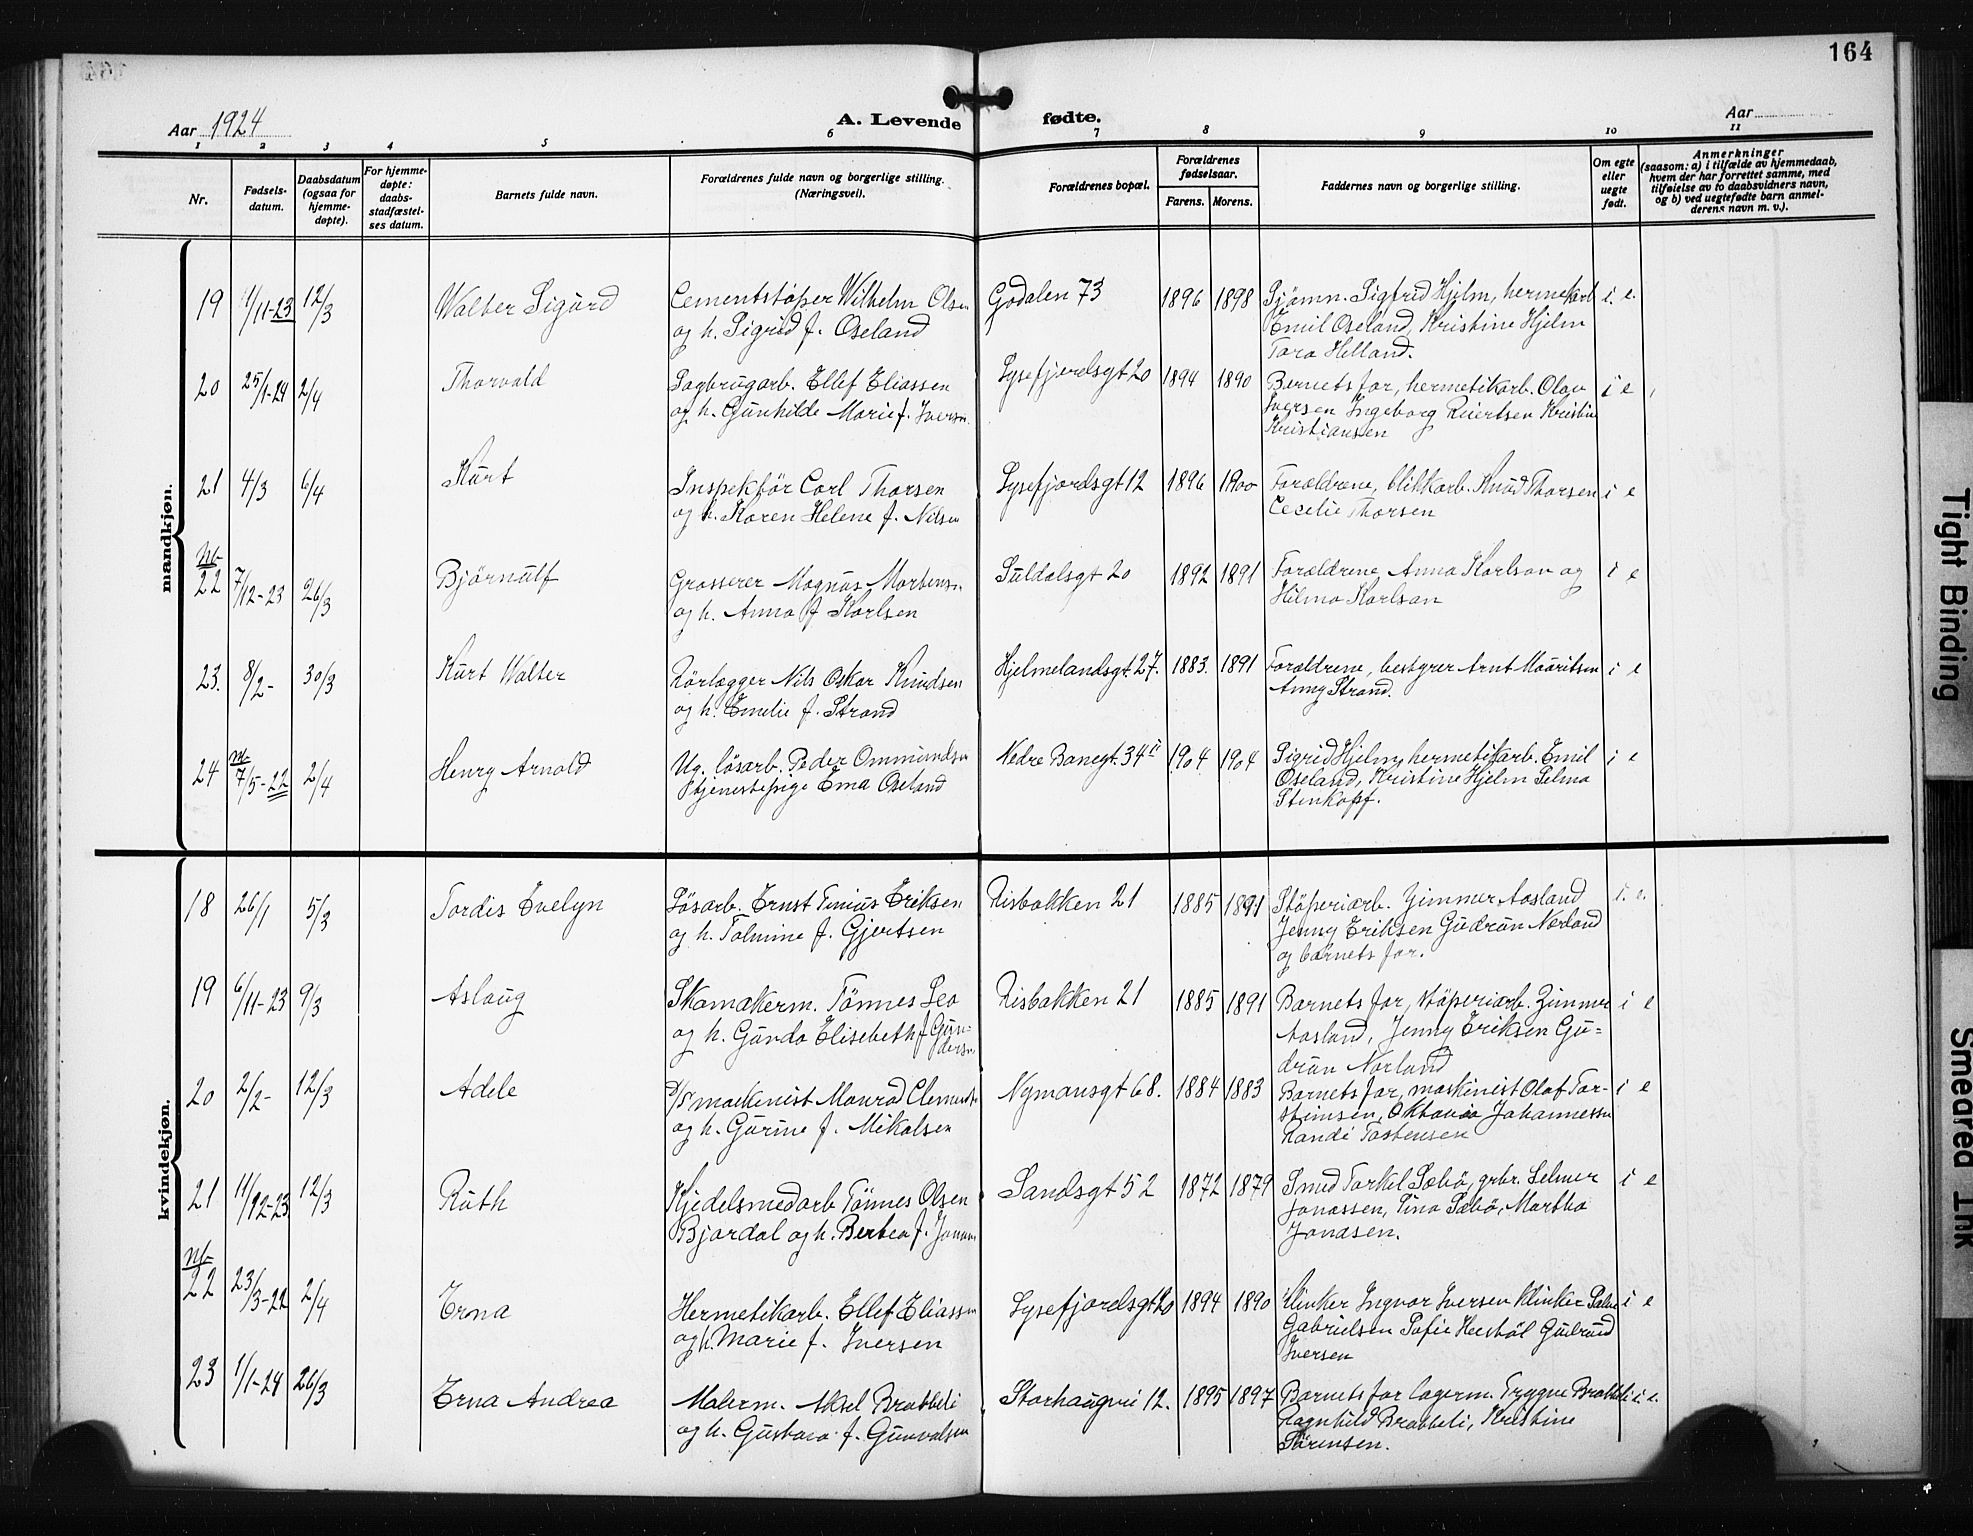 164
Aar 1924
A. Levende fødte.
Aar
1 2 3 4 5 6 7 8 9 10 11
Nr.
Fødsels-
datum.
Daabsdatum
(ogsaa for
hjemme-
døpte).
For hjemme-
døpte:
daabs-
stadfæstel-
ses datum.
Barnets fulde navn.
Forældrenes fulde navn og borgerlige stilling.
(Næringsvei).
Forældrenes bopæl.
Forældrenes
fødselsaar.
Farens. Morens.
Faddernes navn og borgerlige stilling.
Om egte
eller
uegte
født.
Anmerkninger
(saasom: a) i tilfælde av hjemmedaab,
hvem der har forrettet samme, med
tilføielse av to daabsvidners navn,
og b) ved uegtefødte barn anmel-
derens navn m. v.).
mandkjøn.
19 1/11-23 12/3 Walter Sigurd Cementstøper Wilhelm Olsen Godalen 73 1896 1898 Sjømn. Sigfrid Hjelm, hermetikarb i. e.
og h. Sigrid f. Oseland Emil Oseland, Kristine Hjelm
Tora Helland.
20 25/1-24 2/4 Thorvald Sagbrugarb. Ellef Eliassen Lysefjordsgt 20 1894 1890 Barnets far, hermetikarb. Olav i e
og h. Gunhilde Marie f. Iversen Iversen Ingeborg Reiertsen Kristine
Kristiansen
21 4/3 6/4 Kurt Inspektør Carl Thorsen Lysefjordsgt 12 1896 1900 Forældrene, blikkarb. Knud Thorsen i e
og h. Karen Helene f. Nilsen Cecelie Thorsen
22 7/12-23 26/3 Bjørnulf Grosserer Magnus Mortensen Suldalsgt 20 1892 1891 Forældrene Anna Karlson og i e
og h. Anna f Karlsen Hilma Karlson
23. 8/2- 30/3 Kurt Walter Rørlægger Nils Oskar Knudsen Hjelmelandsgt. 27. 1883. 1891 Forældrene, bestyrer Arnt Mauritsen i e
og h. Emelie f. Strand Anny Strand.
24 7/5-22 2/4 Henry Arnold Ug. løsarb. Peder Ommundsen Nedre Banegt. 34 II 1904 1904 Sigrid Hjelm, hermetikarb. Emil i e
Tjenestepige Ema Oseland Oseland, Kristine Hjelm Selma
Stenkopf.
kvindekjøn.
18 26/1 5/3 Tordis Evelyn Løsarb. Ernst Tinius Eriksen Risbakken 21 1885 1891 Støperiarb. Zimmer Aasland i. e.
og h. Tolmine f. Gjertsen Jenny Eriksen Gudrun Norland
og barnets far.
19 6/11-23 9/3 Aslaug Skomakerm. Tønnes Leo Risbakken 21 1885 1891 Barnets far, støperiarb. Zimmer i e
og h. Gunda Elisebeth f Gun- Aasland, Jenny Eriksen Gu-
dersen drun Norland
20 2/2- 12/3 Adele D/S maskinist Monrad Clementsen Nymansgt 68. 1884 1883 Barnets far, maskinist Olaf Tor- i e
og h. Gurine f. Mikalsen steinsen, Oktavia Johannessen
Randi Tostensen
21 11/12-23 12/3 Ruth Kjedelsmedarb Tønnes Olsen Sandsgt 52 1872 1879 Smed Torkel Sæbø, grbr. Selmer i e
Bjordal og h. Bertea f. Jonassen Jonassen, Tina Sæbø, Martha
Jonasen.
22 23/3-22 2/4 Erna Hermetikarb. Ellef Eliassen Lysefjordsgt 20 1894 1890 Klinker Ingvar Iversen Klinker i e
og h. Marie f. Iversen Gabrielsen Sofie Gudrund
Iversen
23 1/1-24 26/3 Erna Andrea Malerm. Aksel Brattbeli Storhaugvei 12. 1895 1897 Barnets far lagerm. Trygve Brattbeli i. e.
og h. Gustava f. Gunvalsen Ragnhild Brattbeli, Kristine
Sørensen.
Tight Binding
Smeared Ink